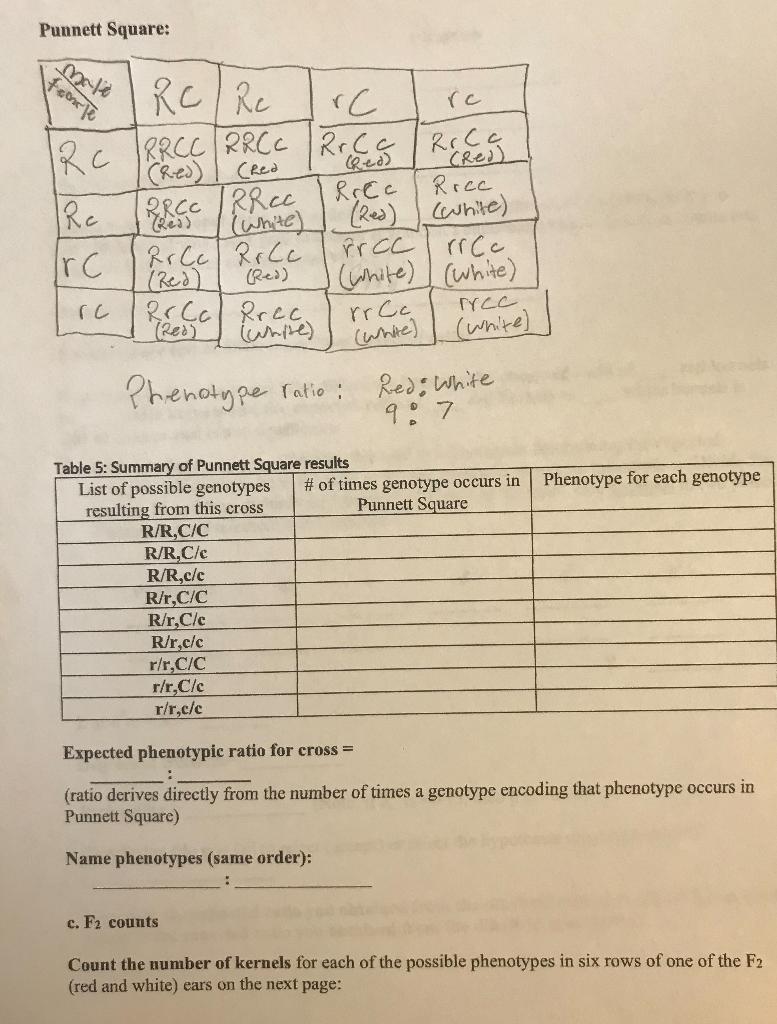 Punnett Square:
Male
Female
RC Rc rC rc
RC RRCC RRCc RrCc RrCc
(Red) (Red (Red) (Red)
Rc RRCc RRcc RrCc Rrcc
(Red) (white) (Red) (white)
rC RrCc RrCc rrCC rrCc
(Red) (Red) (white) (white)
rc RrCc Rrcc rrCc rrcc
(Red) (white) (white) (white)
Phenotype ratio : Red : White
9 : 7
Table 5: Summary of Punnett Square results
List of possible genotypes resulting from this cross # of times genotype occurs in Punnett Square Phenotype for each genotype
R/R,C/C
R/R,C/c
R/R,c/c
R/r,C/C
R/r,C/c
R/r,c/c
r/r,C/C
r/r,C/c
r/r,c/c
Expected phenotypic ratio for cross =
________ : ________
(ratio derives directly from the number of times a genotype encoding that phenotype occurs in
Punnett Square)
Name phenotypes (same order):
______________ : ______________
c. F₂ counts
Count the number of kernels for each of the possible phenotypes in six rows of one of the F₂
(red and white) ears on the next page: